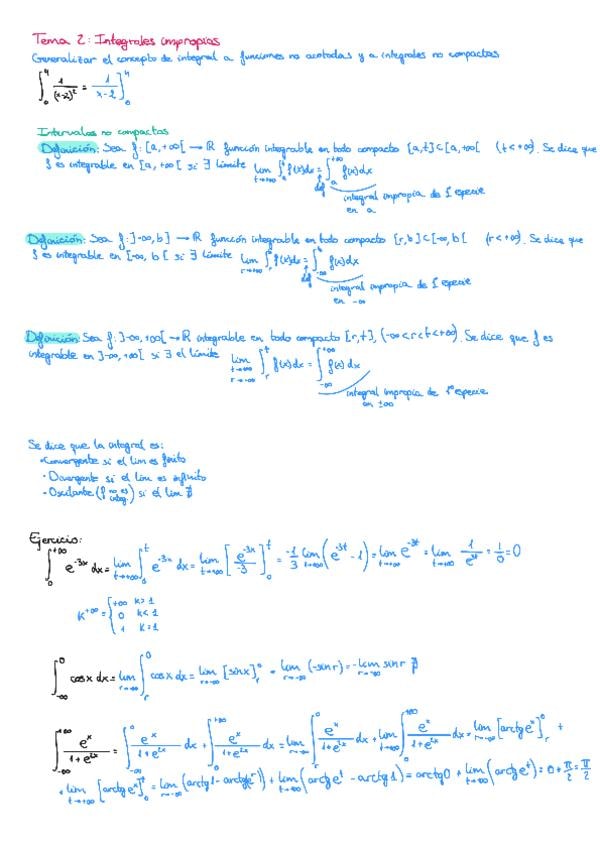 Tema 2: Integrales impropias
Generalizar el concepto de integral a funciones no acotadas y a integrales no compactas
∫₀⁴ 1/(x-2)² = 1/(x-2)]₀⁴
Intervalos no compactos
Definición: Sea f: [a,+∞[ → ℝ función integrable en todo compacto [a,t]⊂[a,+∞[ (t<+∞). Se dice que
f es integrable en [a,+∞[ si ∃ límite lim t→+∞ ∫ₐᵗ f(x)dx = ∫ₐ^{+∞} f(x)dx
def
integral impropia de 1ª especie
en a
Definición: Sea f: ]-∞,b] → ℝ función integrable en todo compacto [r,b]⊂[-∞,b[ (r<+∞). Se dice que
f es integrable en [-∞,b[ si ∃ límite lim r→-∞ ∫ᵣᵇ f(x)dx = ∫_{-∞}ᵇ f(x)dx
def
integral impropia de 1ª especie
en -∞
Definición: Sea f: ]-∞,+∞[ → ℝ integrable en todo compacto [r,t], (-∞<r<t<+∞). Se dice que f es
integrable en ]-∞,+∞[ si ∃ el límite lim t→+∞ r→-∞ ∫ᵣᵗ f(x)dx = ∫_{-∞}^{+∞} f(x)dx
integral impropia de 1ª especie
en ±∞
Se dice que la integral es:
· Convergente si el lim es finito
· Divergente si el lim es infinito
- Oscilante (f no es integ.) si el lim ∄
Ejercicio:
∫₀^{+∞} e^{-3x} dx = lim t→+∞ ∫₀ᵗ e^{-3x} dx = lim t→+∞ [e^{-3x}/-3]₀ᵗ = -1/3 lim t→+∞ (e^{-3t} - 1) = lim t→+∞ e^{-3t} = lim t→+∞ 1/e^{3t} = 1/0 = 0
K^{+∞} = { +∞ K>1
0 K<1
1 K=1
∫_{-∞}⁰ cosx dx = lim r→-∞ ∫ᵣ⁰ cosx dx = lim r→-∞ [sinx]ᵣ⁰ = lim r→-∞ (-sinr) = -lim r→-∞ sinr ∄
∫_{-∞}^{+∞} eˣ/(1+e^{2x}) = ∫_{-∞}⁰ eˣ/(1+e^{2x}) dx + ∫₀^{+∞} eˣ/(1+e^{2x}) dx = lim r→-∞ ∫ᵣ⁰ eˣ/(1+e^{2x}) dx + lim t→+∞ ∫₀^{+∞} eˣ/(1+e^{2x}) dx = lim r→-∞ [arctg eˣ]ᵣ⁰ +
+ lim t→+∞ [arctg eˣ]₀ᵗ = lim r→-∞ (arctg1 - arctg(eʳ)) + lim t→+∞ (arctg eᵗ - arctg 1) = arctg0 + lim t→+∞ (arctg eᵗ) = 0 + π/2 = π/2